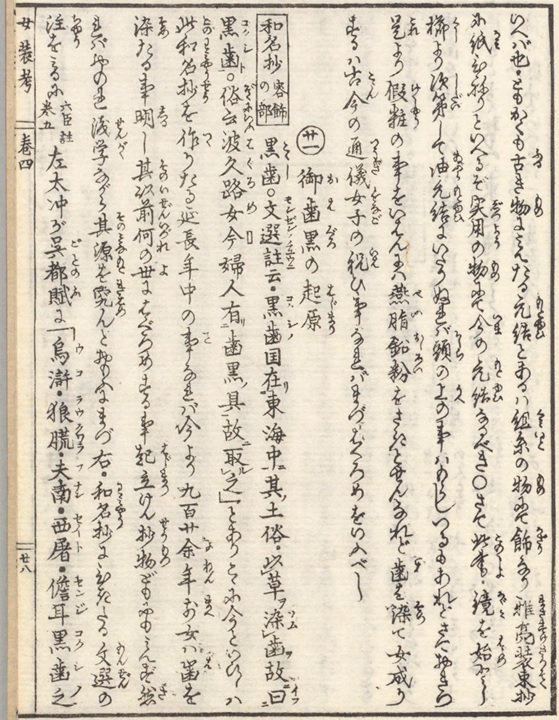 いへバ也・ともかくも古き物にみえたる元結とあるハ組糸の物にて飾なり 雅亮装束抄
に紙ひねりといへるぞ実用の物にて今の元結なるべき○さて此書ハ鏡を始とし
櫛より次第して油元結にいたりぬれバ頭の上の事ハ
是より假粧の事をいはんにハ燕脂鉛粉をさきとせんなれど歯を染て女成り
するハ古今の通儀女子の祝ひ事なれバまづはぐろめをいふべし
廿一 御歯黒の起原
和名抄 容飾の部 黒歯○文選註云・黒歯国在東海中其土俗・以草染歯故曰
黒歯○俗云波久路女今婦人有歯黒具故取之とあり
此和名抄を作りたる延長年中の事なれバ今より九百廿余年前女ハ歯を
染たる事明し其以前何の世にはぐろめする事起立けん抄物どもにもみえず然
れバおのれ浅学ながら其源を究んとおもふにまづ右・和名抄に引れたる文選の
注をみるに 六臣註巻五 左太冲が呉都賦に「烏滸・狼䐠・夫南・西屠・儋耳黒歯之
女装考 巻四 廿八